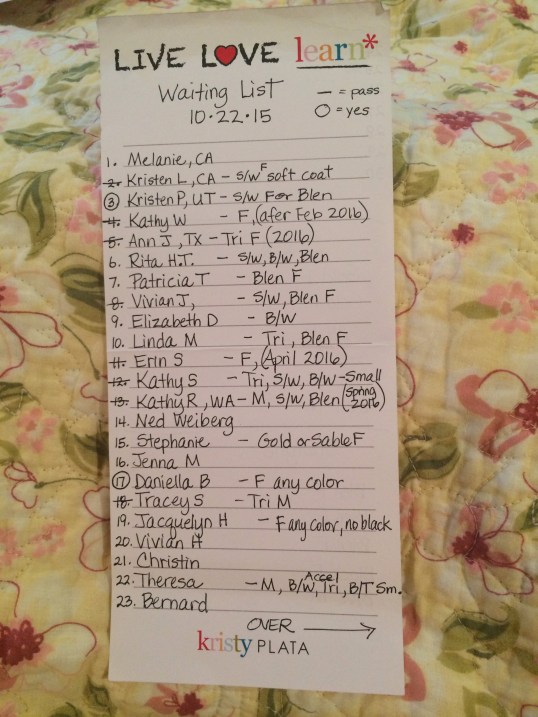 LIVE LOVE learn*
Waiting List
10·22·15
— = pass
O = yes
1. Melanie, CA
2. Kristen L, CA – S/W F soft coat
3 Kristen P, UT – S/W F or Blen
4. Kathy W – F, (afer Feb 2016)
5. Ann J, TX – Tri F (2016)
6. Rita H.T. – S/W, B/W, Blen
7. Patricia T – Blen F
8. Vivian J, – S/W, Blen F
9. Elizabeth D – B/W
10. Linda M – Tri, Blen F
11. Erin S – F, (April 2016)
12. Kathy S – Tri, S/W, B/W – Small
13. Kathy R, WA – M, S/W, Blen (Spring 2016)
14. Ned Weiberg
15. Stephanie – Gold or Sable F
16. Jenna M
17 Daniella B – F any color
18. Tracey S – Tri M
19. Jacquelyn H – F any color, no black
20. Vivian H
21. Christin
22. Theresa – M, B/W, Accel Tri, B/T Sm.
23. Bernard
OVER
kristy PLATA